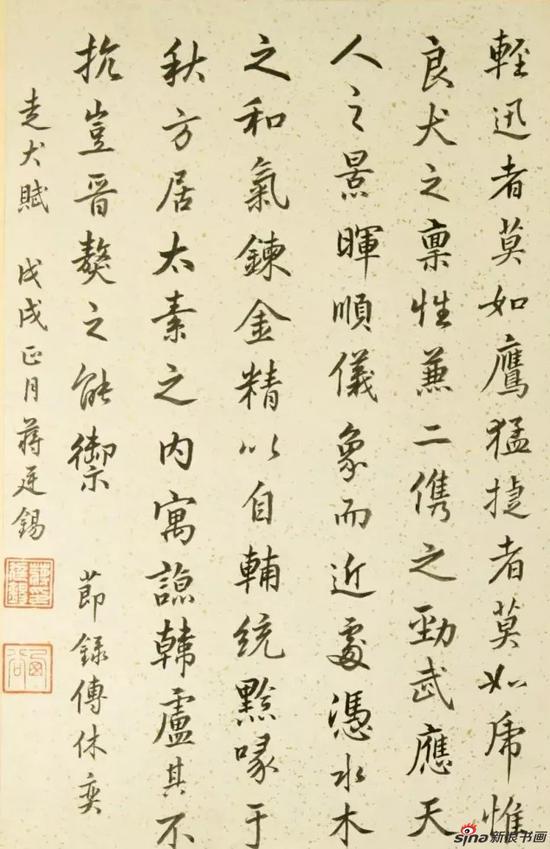 輕迅者莫如鷹猛捷者莫如虎惟
良犬之稟性兼二儁之勁武應天
人之景暉順儀象而近處憑水木
之和氣鍊金精以自輔統黔喙于
秋方居太素之内寓諒韓盧其不
抗豈晋獒之能禦 節録傅休奕
走犬賦 戊戌正月蔣廷錫
sina新浪书画